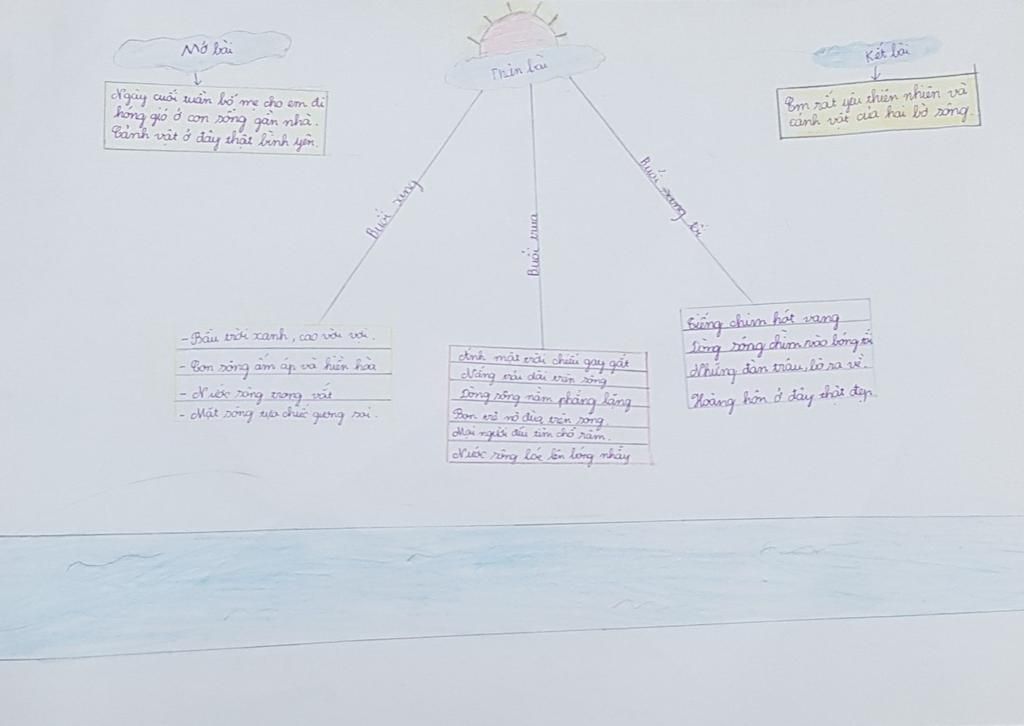 Mở bài
Ngày cuối tuần bố mẹ cho em đi
hóng gió ở con sông gần nhà.
Cảnh vật ở đây thật bình yên.
Thân bài
Kết bài
Em rất yêu thiên nhiên và
cảnh vật của hai bờ sông.
Buổi sáng
Buổi trưa
Buổi tối
- Bầu trời xanh, cao vời vợi.
- Con sông ấm áp và hiền hòa
- Nước sông trong vắt
- Mặt sông tựa chiếc gương soi.
Ánh mặt trời chiếu gay gắt
Nắng trải dài trên sông
Dòng sông nằm phẳng lặng
Bọn trẻ nô đùa trên sông.
Mọi người đều tìm chỗ râm.
Nước sông lóe lên lóng nhảy
Tiếng chim hót vang
Dòng sông chìm vào bóng tối
Những đàn trâu, bò ra về.
Hoàng hôn ở đây thật đẹp.